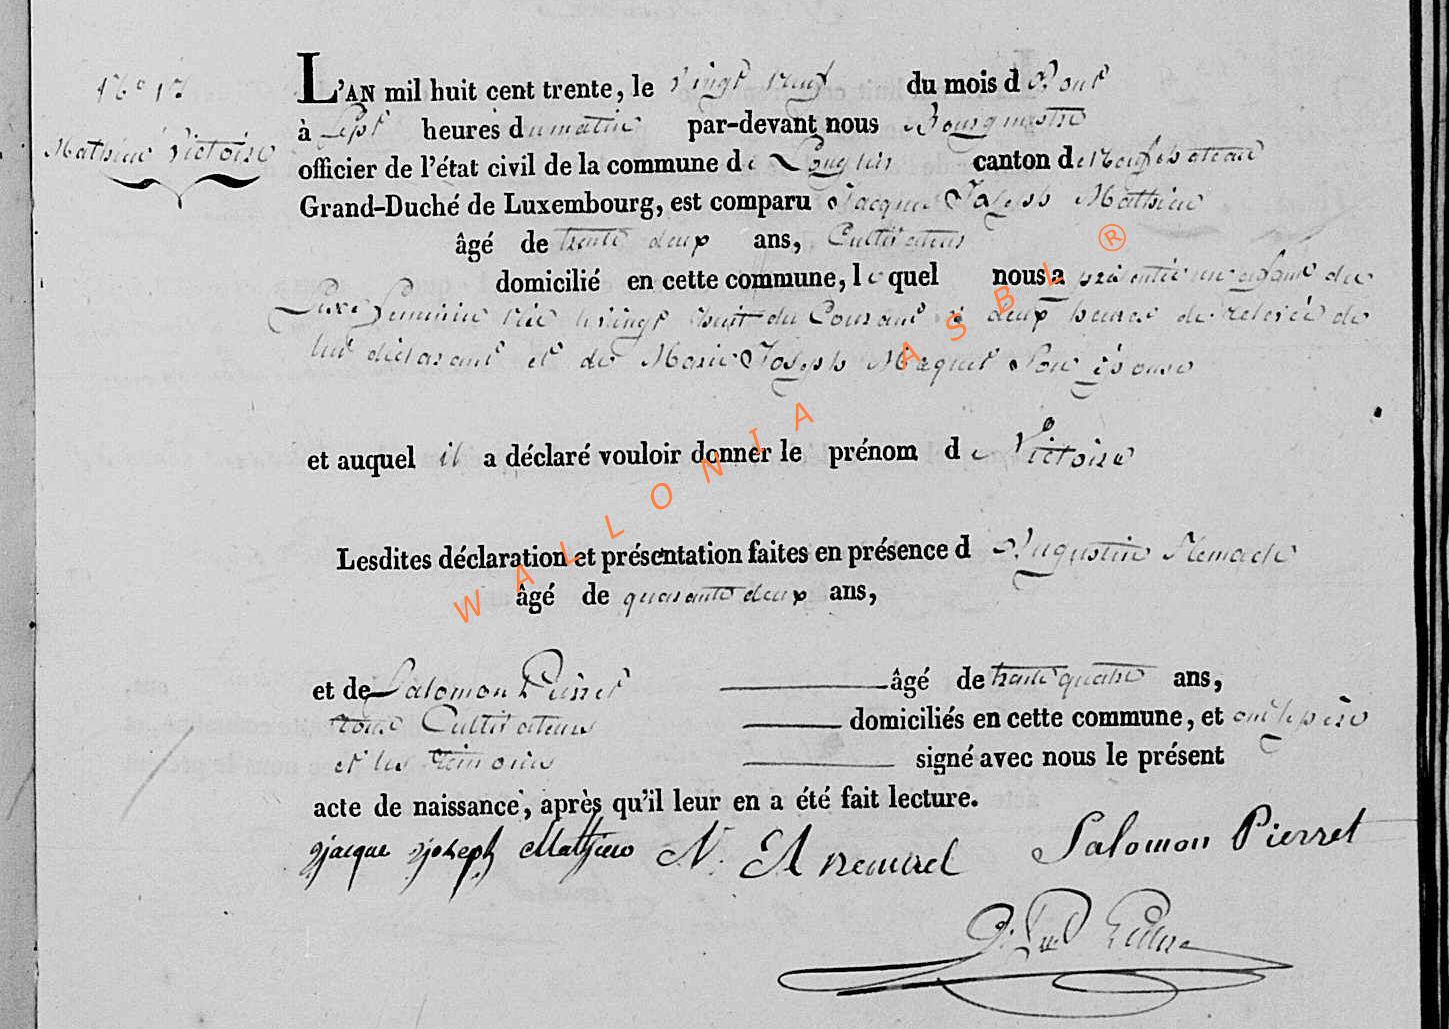 N° 17
Mathieu Victoire
L'AN mil huit cent trente, le vingt neuf du mois d'Aout
à Sept heures du matin par-devant nous Bourgmestre
officier de l'état civil de la commune de Longlier canton de Neufchateau
Grand-Duché de Luxembourg, est comparu Jacque Joseph Mathieu
âgé de trente deux ans, Cultivateur
domicilié en cette commune, lequel nous a présentée un enfant du
Sexe feminin née le vingt huit du Courant à deux heures de relevée de
lui déclarant et de Marie Joseph Maquet Son épouse
et auquel il a déclaré vouloir donner le prénom de Victoire
Lesdites déclaration et présentation faites en présence d'Augustin
âgé de quarante deux ans,
et de Salomon Pierret âgé de trente quatre ans,
tous Cultivateurs domiciliés en cette commune, et ont le père
et les temoins signé avec nous le présent
acte de naissance, après qu'il leur en a été fait lecture.
jjacque jjoseph Mathieu N. A Salomon Pierret
WALLONIA ASBL ®